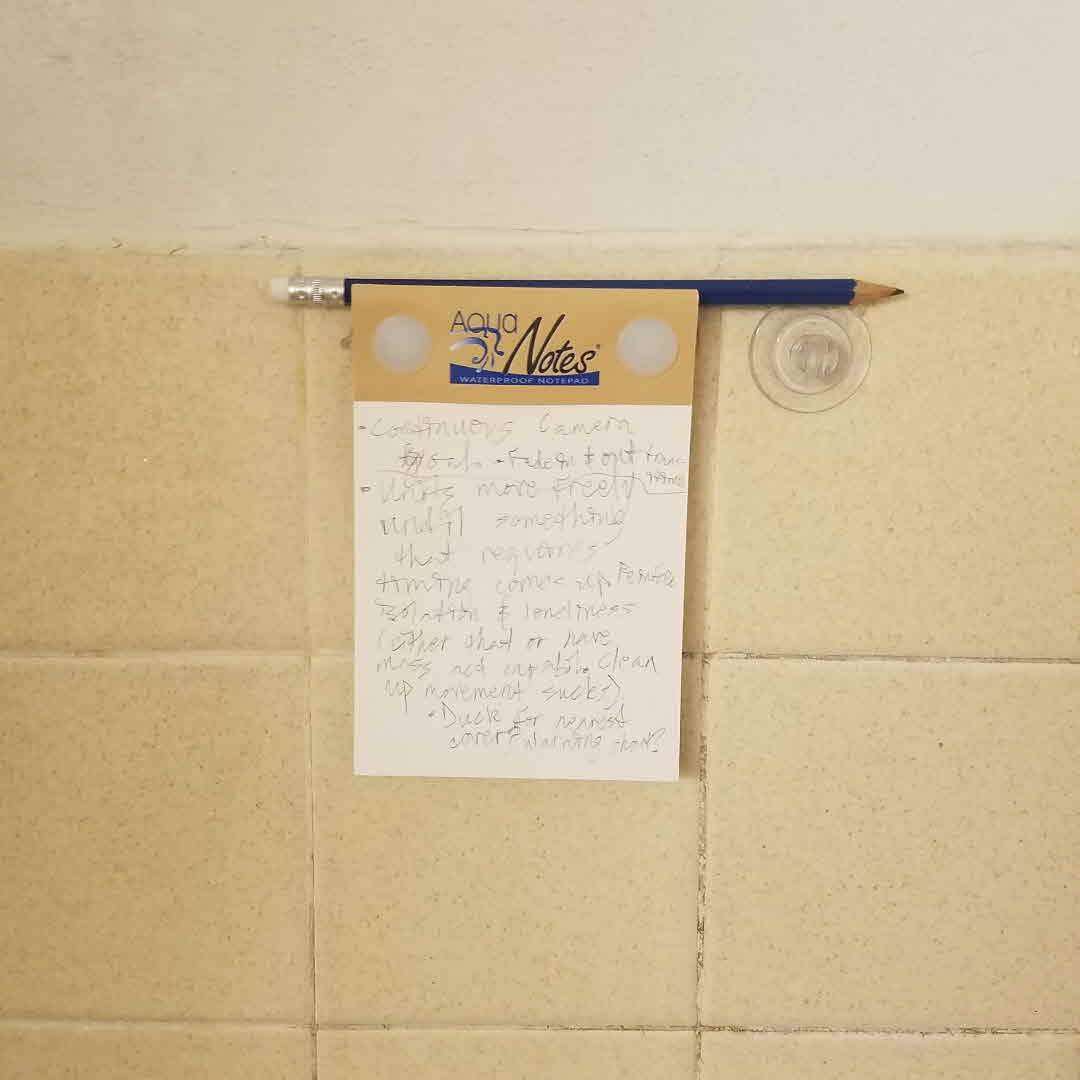 Aqua
Notes®
WATERPROOF NOTEPAD
- Continuous Camera
- Fade in & out
- Units move freely
until something
that requires
timing comes up. Reinforce
isolation & loneliness
(either that or have
mass act capabil. Clean
up movement sucks)
- Duck for nearest
cover? Warning shot?